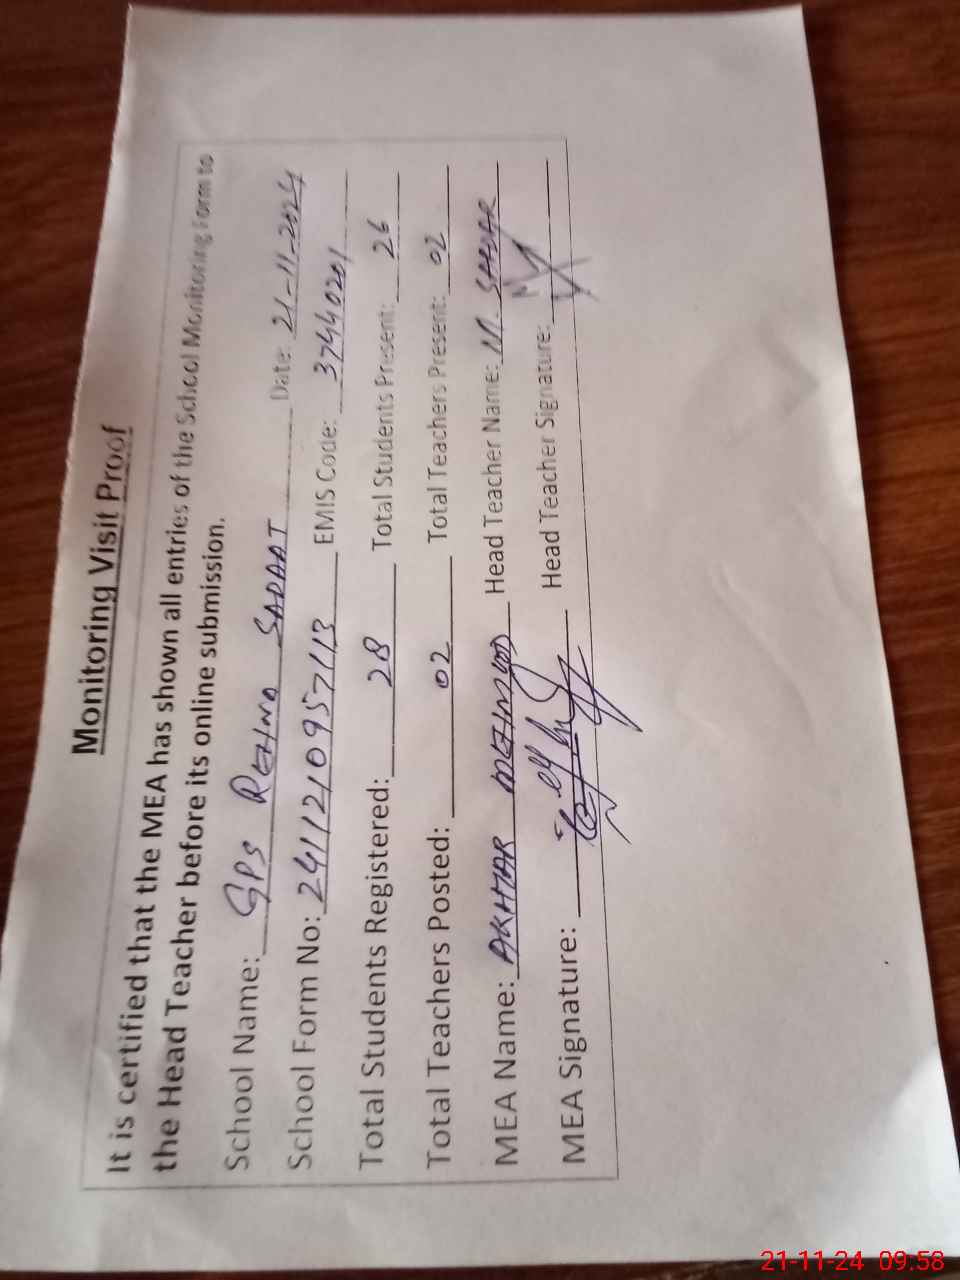 Monitoring Visit Proof
It is certified that the MEA has shown all entries of the School Monitoring Form to
the Head Teacher before its online submission.
School Name: GPS REHNA SADAAT Date: 21-11-2024
School Form No: 2411210957113 EMIS Code: 37440201
Total Students Registered: 28 Total Students Present: 26
Total Teachers Posted: 02 Total Teachers Present: 02
MEA Name: AKHTAR MEHMOOD Head Teacher Name: M. SAFDAR
MEA Signature: Head Teacher Signature:
21-11-24 09.58